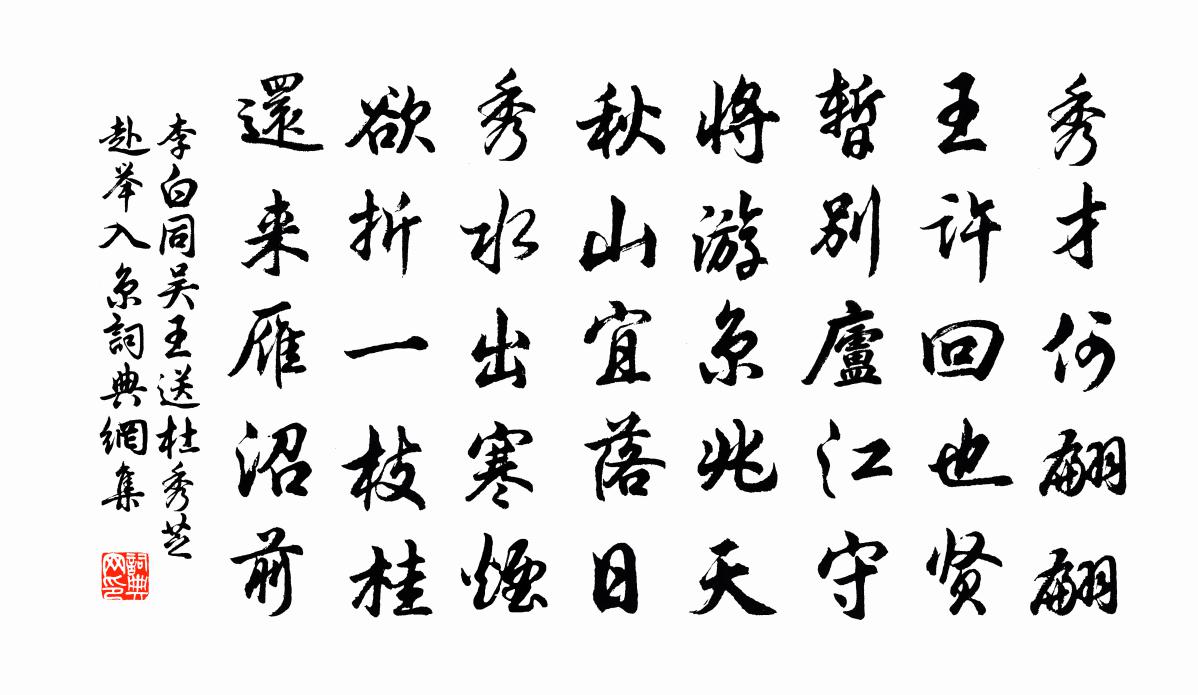 秀才何翩翩
王许回也贤
暂別廬江守
将游京兆天
秋山宜落日
秀水出寒煙
欲折一枝桂
還来雁沼前
李白同吴王送杜秀芝
赴举入京詞典網集
詞典
网印